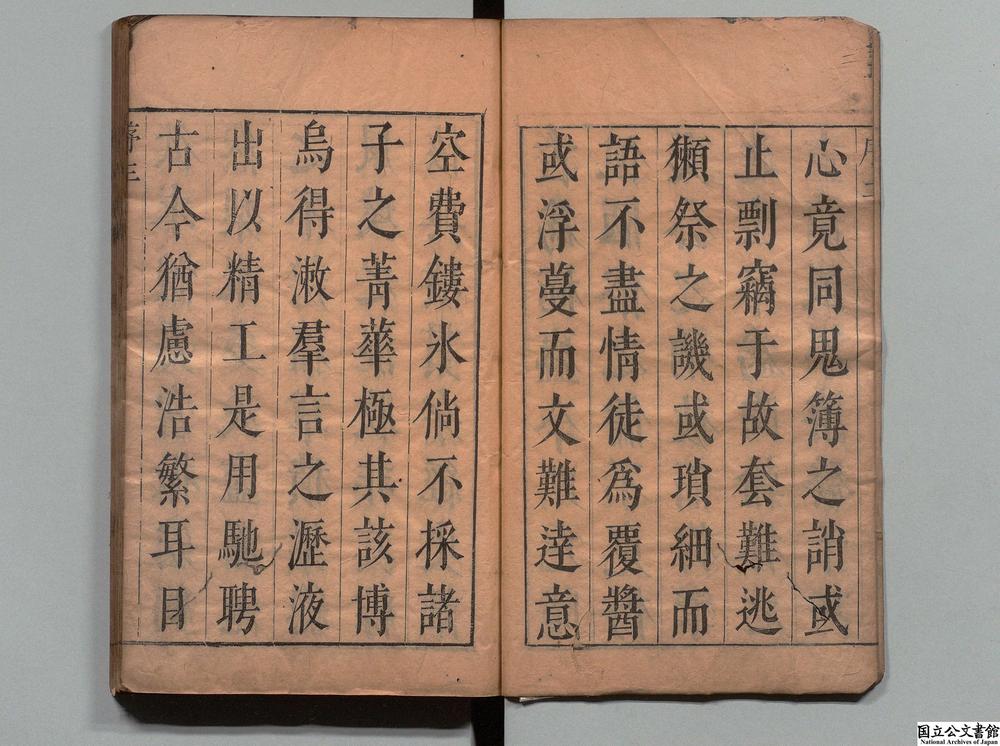 心竟同鬼簿之誚或
止剽竊于故套難逃
獺祭之譏或瑣細而
語不盡情徒爲覆醬
或浮蔓而文難逹意
空費鏤氷倘不採諸
子之菁華極其該博
烏得潄羣言之瀝液
出以精工是用馳聘
古今猶慮浩繁耳目
序三
国立公文書館
National Archives of Japan